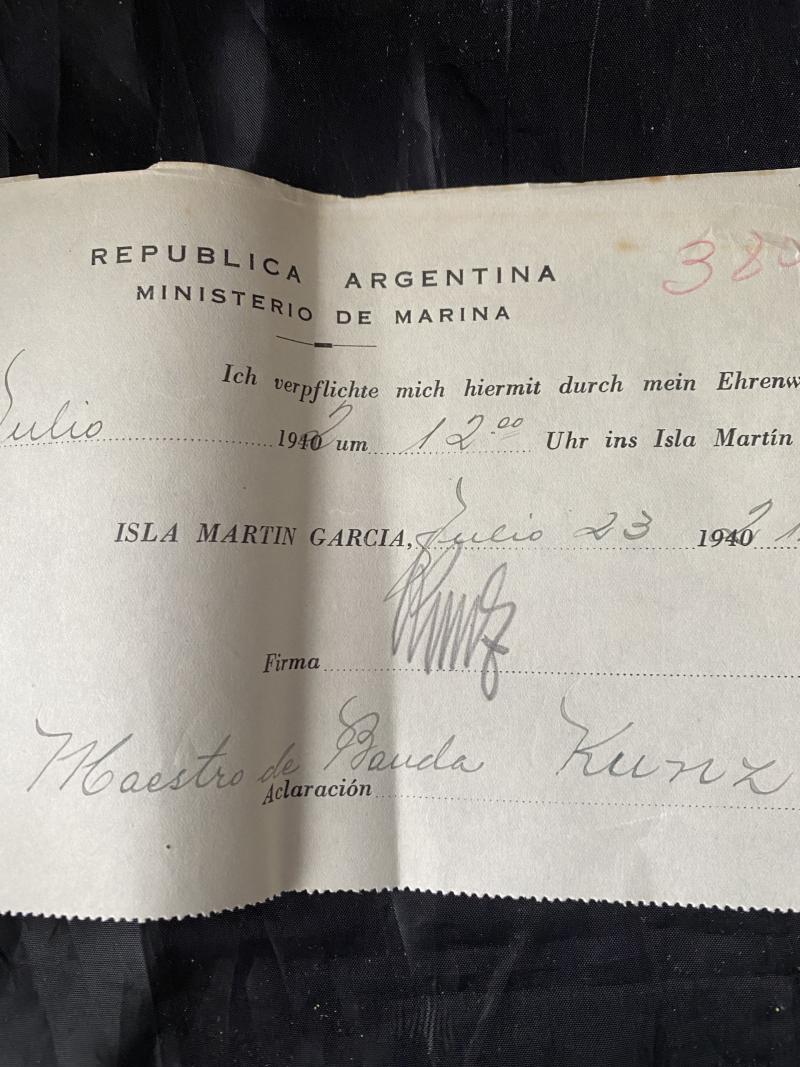 REPUBLICA ARGENTINA
MINISTERIO DE MARINA
Ich verpflichte mich hiermit durch mein Ehrenw
Julio 1942 um 12.00 Uhr ins Isla Martín
ISLA MARTIN GARCIA, Julio 23 1942
Firma Kunz
Maestro de Banda Kunz
Aclaración